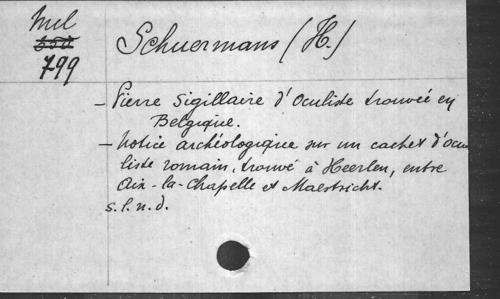 Mel
799
Schuermans (H.)
- Pierre Sigillaire d'Oculiste trouvée en
Belgique.
- Notice archéologique sur un cachet d'ocu
liste romain, trouvé à Heerlen, entre
Aix-la-Chapelle et Maestricht.
s.l.n.d.